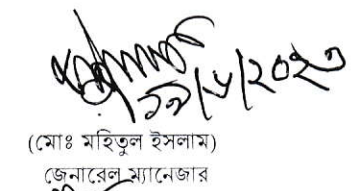 ১৯/৮/২০২৩
(মোঃ মহিতুল ইসলাম)
জেনারেল ম্যানেজার